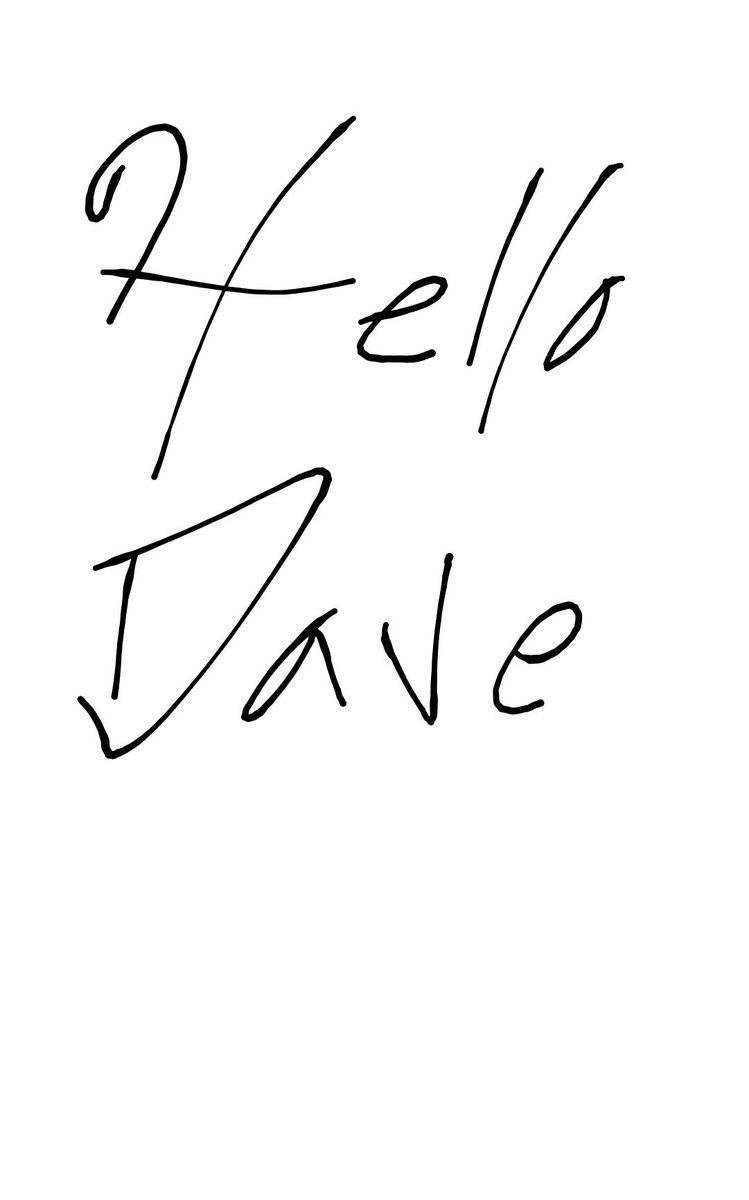 Hello
Dave